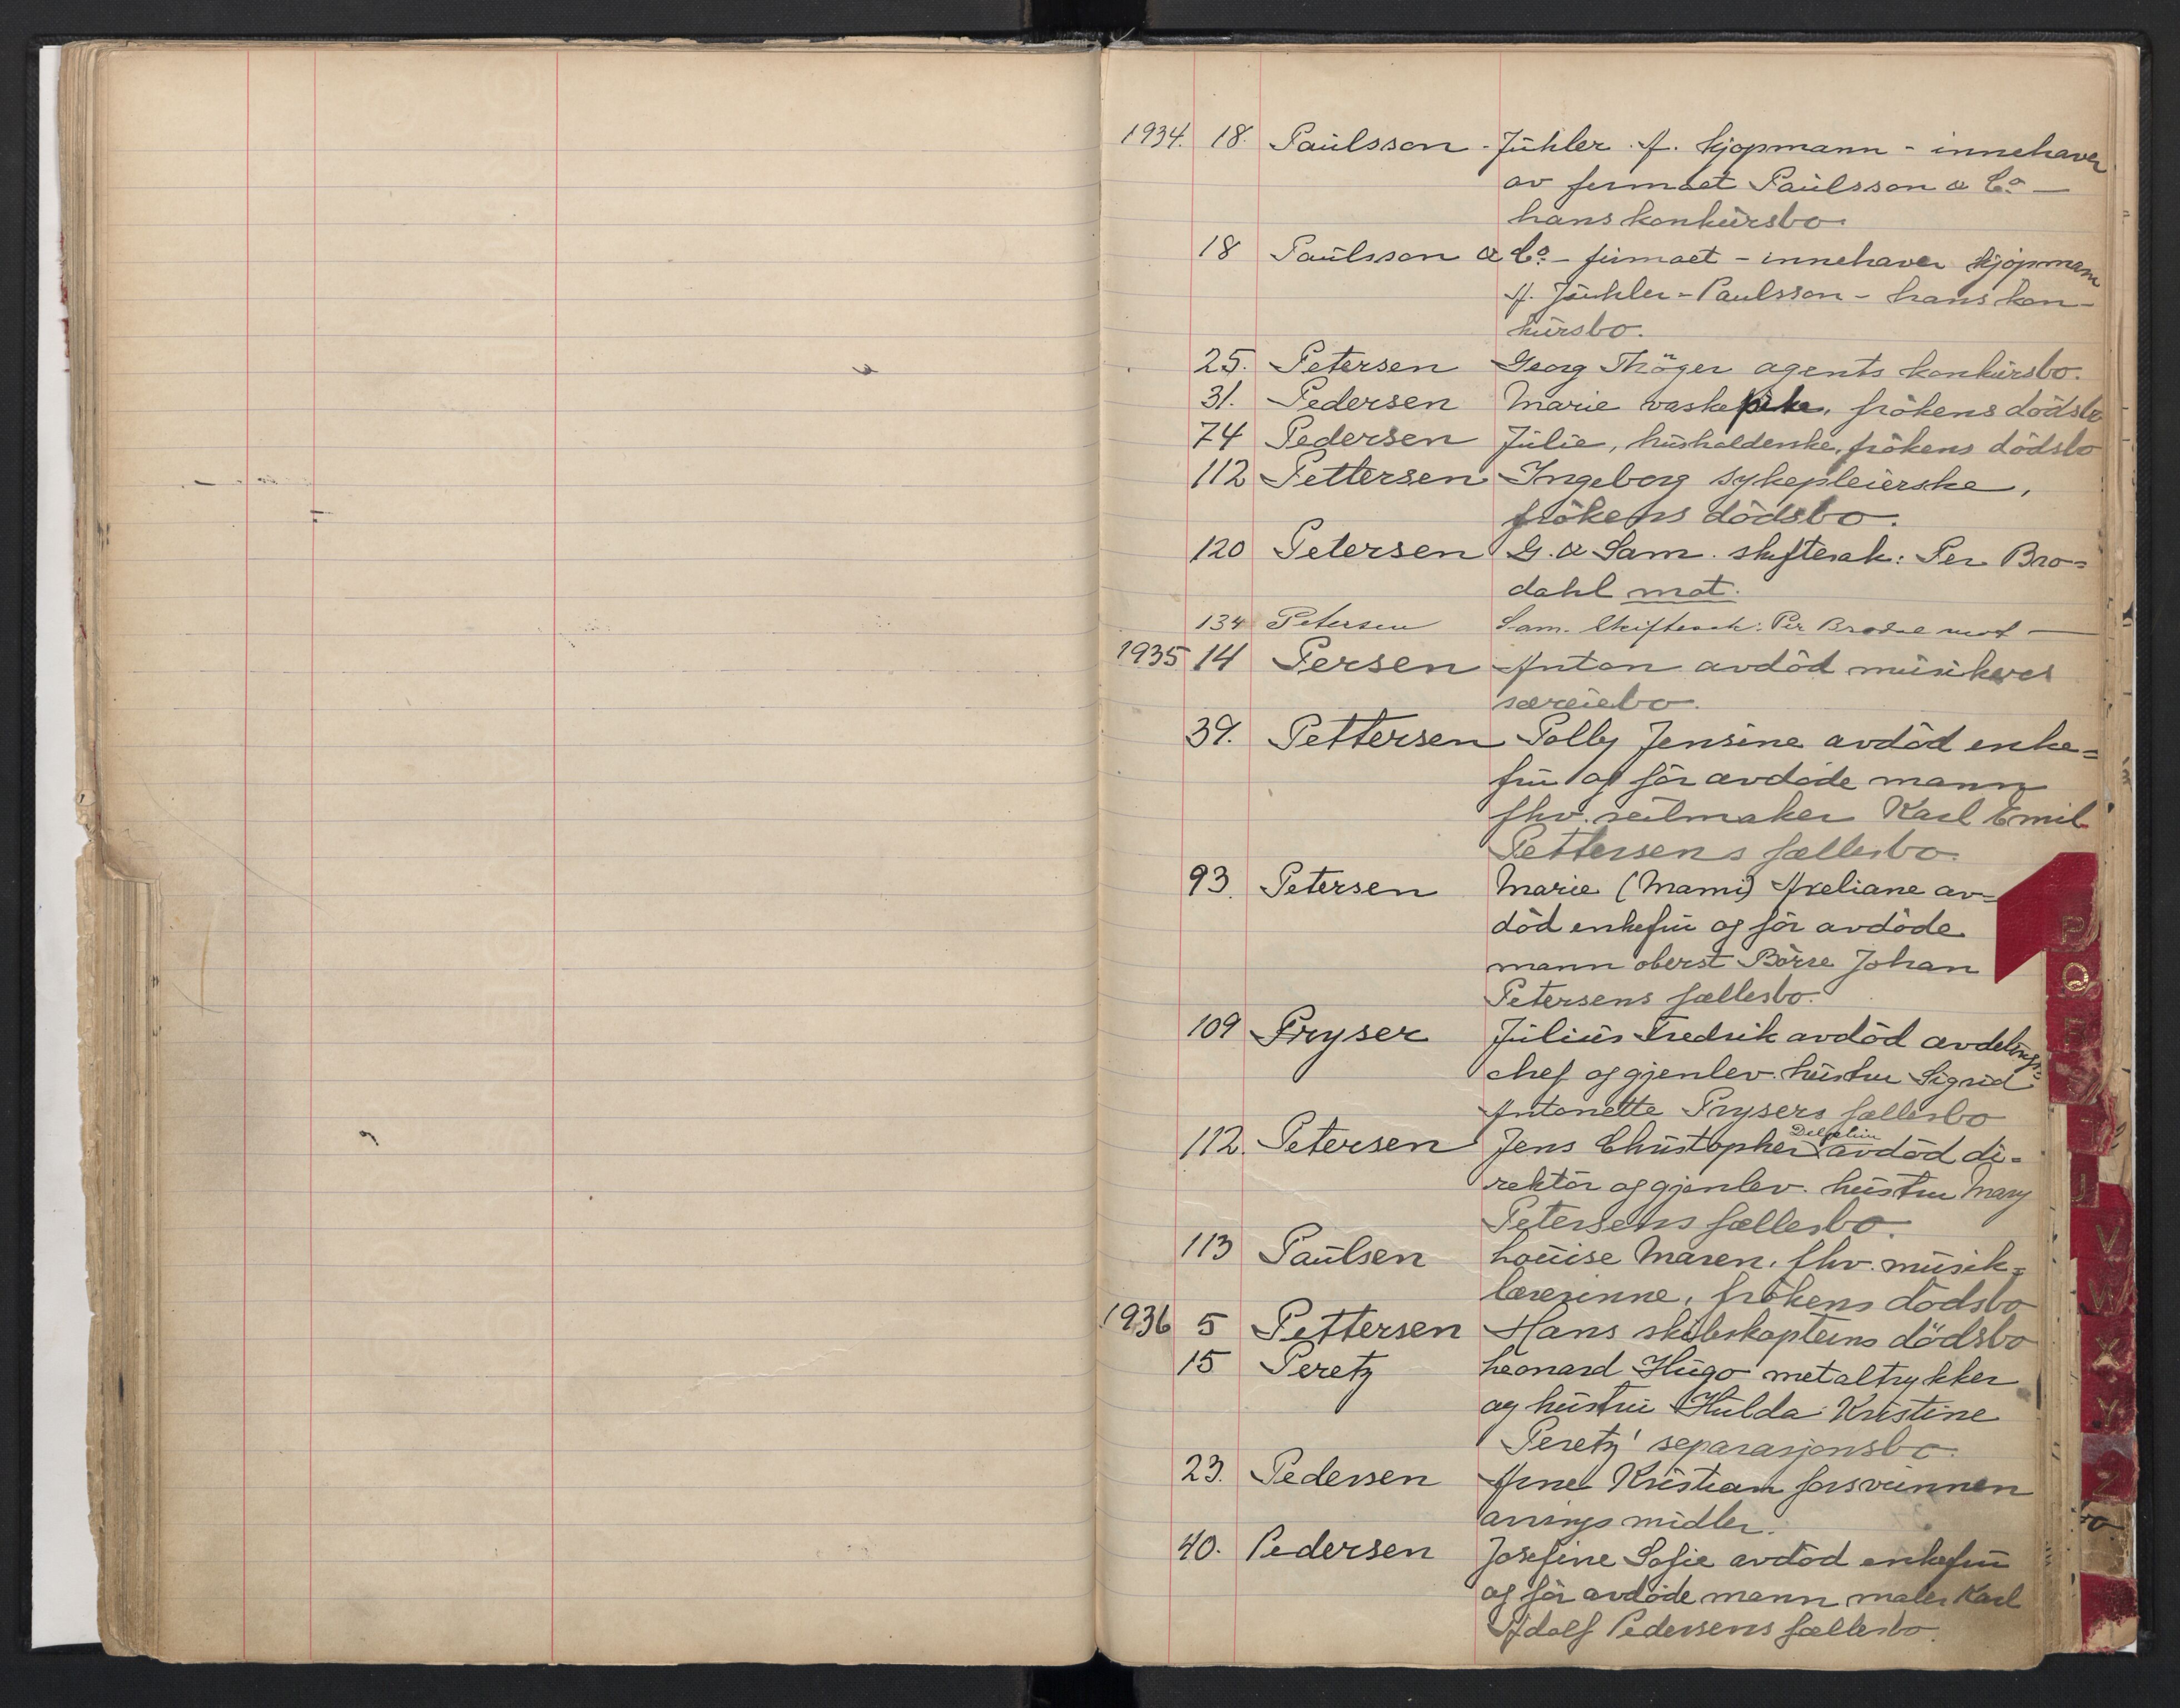 1934. 18. Paulsson - Juhler A. kjøpmann - innehaver
av firmaet Paulsson & Co. —
hans konkursbo.
18 Paulsson & Co. - firmaet - innehaver kjøpmann
A. Juhler - Paulsson - hans kon-
kursbo.
25. Petersen Georg Thöger agents konkursbo.
31. Pedersen Marie vaskepike, frökens dödsbo
74 Pedersen Julie, husholderske, frökens dödsbo
112 Pettersen Ingeborg sykepleierske,
frökens dödsbo.
120 Petersen G. & Sam. skiftesak: Per Bro=
dahl mot.
134 Petersen Sam. Skiftesak: Per mot —
1935 14 Persen Anton avdöd musikers
særeiebo.
39. Pettersen Polly Jensine avdöd enke=
fru og för avdöde mann
fhv. seilmaker Karl Emil
Pettersens fællesbo.
93. Petersen Marie (Mami) Axeliane av=
död enkefru og för avdöde
mann oberst Börre Johan
Petersens fællesbo.
109 Pryser Julius Fredrik avdöd avdelings=
chef og gjenlev. hustru Sigrid
Antonette Prysers fællesbo
112. Petersen Jens Christopher Delphin avdöd di=
rektör og gjenlev. hustru Mary
Petersens fællesbo.
113 Paulsen Louise Maren, fhv. musik=
lærerinne, frökens dödsbo
1936 5 Pettersen Hans skibskapteins dödsbo
15 Peretz Leonard Hugo metaltrykker
og hustru Hulda Kristine
Peretz' separasjonsbo.
23. Pedersen Arne Kristian forsvunnen
arvings midler.
40. Pedersen Josefine Sofie avdöd enkefru
og för avdöde mann maler Karl
Adolf Pedersens fællesbo.
P
Q
R
S
T
U
V
W
X
Y
Z